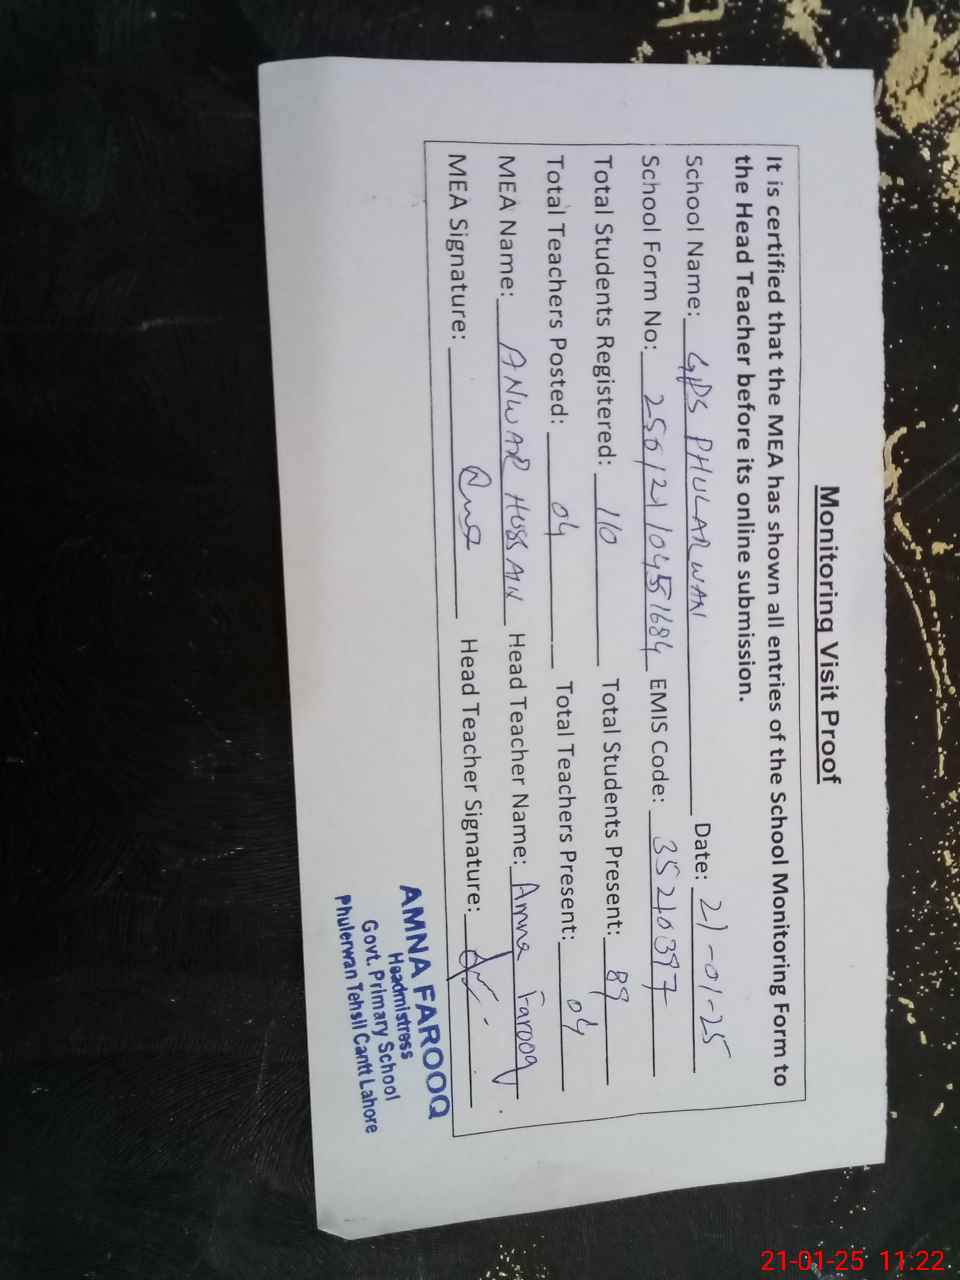 Monitoring Visit Proof
It is certified that the MEA has shown all entries of the School Monitoring Form to
the Head Teacher before its online submission.
School Name: GPS PHULARWAN Date: 21-01-25
School Form No: EMIS Code: 35210397
Total Students Registered: 110 Total Students Present: 89
Total Teachers Posted: 04 Total Teachers Present: 04
MEA Name: ANWAR HUSSAIN Head Teacher Name: Amna Farooq
MEA Signature: Head Teacher Signature:
AMNA FAROOQ
Headmistress
Govt. Primary School
Phulerwan Tehsil Cantt Lahore
21-01-25 11:22